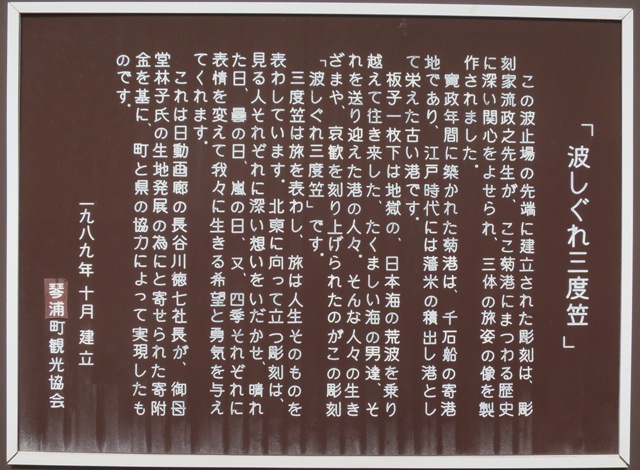 「波しぐれ三度笠」
この波止場の先端に建立された彫刻は、彫
刻家流政之先生が、ここ菊港にまつわる歴史
に深い関心をよせられ、三体の旅姿の像を製
作されました。
寛政年間に築かれた菊港は、千石船の寄港
地であり、江戸時代には藩米の積出し港とし
て栄えた古い港です。
板子一枚下は地獄の、日本海の荒波を乗り
越えて往き来した、たくましい海の男達、そ
れを送り迎えた港の人々。そんな人々の生き
ざまや、哀歓を刻り上げられたのがこの彫刻
「波しぐれ三度笠」です。
三度笠は旅を表わし、旅は人生そのものを
表わしています。北東に向って立つ彫刻は、
見る人それぞれに深い想いをいだかせ、晴れ
た日、曇の日、嵐の日、又、四季それぞれに
表情を変えて我々に生きる希望と勇気を与え
てくれます。
これは日動画廊の長谷川徳七社長が、御母
堂林子氏の生地発展の為にと寄せられた寄附
金を基に、町と県の協力によって実現したも
のです。
一九八九年 十月 建立
琴浦町観光協会